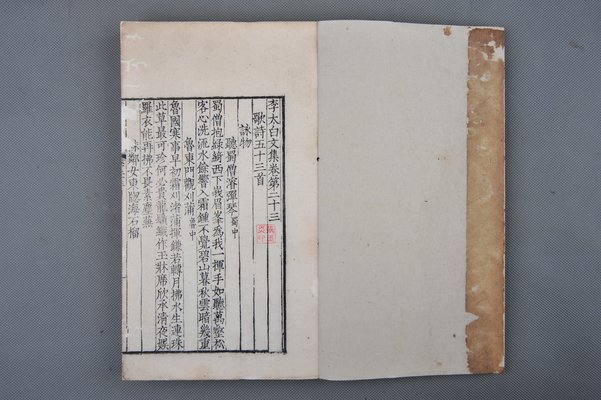 李太白文集卷第二十三
歌詩五十三首
詠物
聽蜀僧濬彈琴蜀中
蜀僧抱綠綺西下峨眉峯為我一揮手如聽萬壑松
客心洗流水餘響入霜鍾不覺碧山暮秋雲暗幾重
魯東門觀刈蒲魯中
魯國寒事早初霜刈渚蒲揮鎌若轉月拂水生連珠
此草最可珍何必貴龍鬚織作玉牀席欣承清夜娛
羅衣能再拂不畏素塵蕪
詠鄰女東窻海石榴